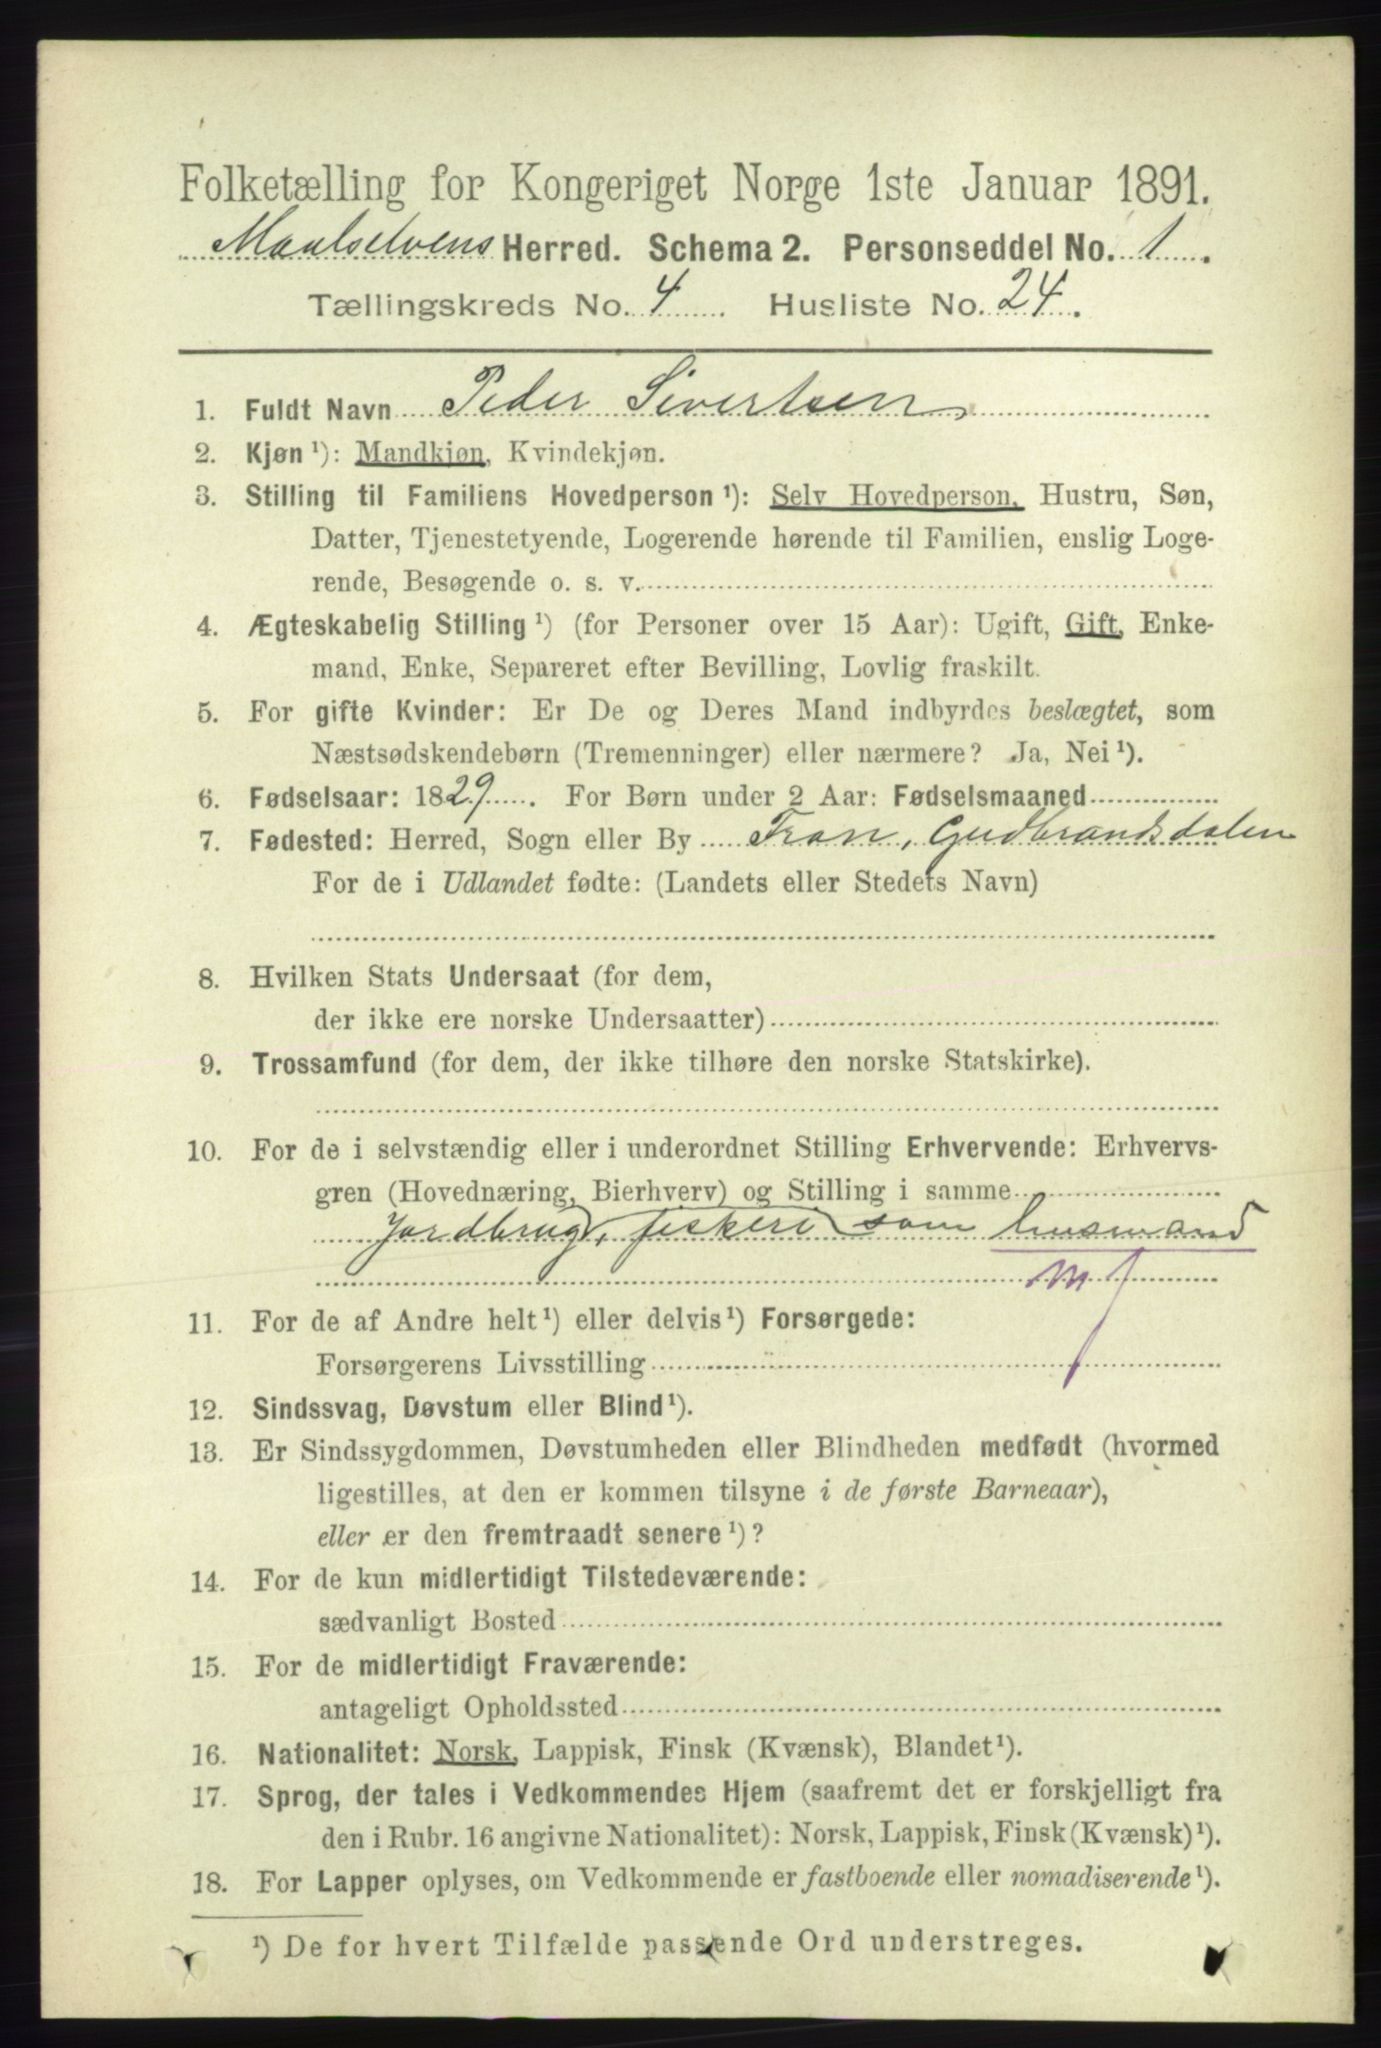 Folketælling for Kongeriget Norge 1ste Januar 1891.
Maalselvens Herred. Schema 2. Personseddel No. 1.
Tællingskreds No. 4 Husliste No. 24.
1. Fuldt Navn Peder Sivertsen
2. Kjøn ¹): Mandkjøn, Kvindekjøn.
3. Stilling til Familiens Hovedperson ¹): Selv Hovedperson, Hustru, Søn,
Datter, Tjenestetyende, Logerende hørende til Familien, enslig Loge-
rende, Besøgende o. s. v.
4. Ægteskabelig Stilling ¹) (for Personer over 15 Aar): Ugift, Gift, Enke-
mand, Enke, Separeret efter Bevilling, Lovlig fraskilt.
5. For gifte Kvinder: Er De og Deres Mand indbyrdes beslægtet, som
Næstsødskendebørn (Tremenninger) eller nærmere? Ja, Nei ¹).
6. Fødselsaar: 1829. For Børn under 2 Aar: Fødselsmaaned
7. Fødested: Herred, Sogn eller By Fron, Gudbrandsdalen
For de i Udlandet fødte: (Landets eller Stedets Navn)
8. Hvilken Stats Undersaat (for dem,
der ikke ere norske Undersaatter)
9. Trossamfund (for dem, der ikke tilhøre den norske Statskirke).
10. For de i selvstændig eller i underordnet Stilling Erhvervende: Erhvervs-
gren (Hovednæring, Bierhverv) og Stilling i samme
Jordbrug, fiskeri som husmand
11. For de af Andre helt ¹) eller delvis ¹) Forsørgede:
Forsørgerens Livsstilling
12. Sindssvag, Døvstum eller Blind ¹).
13. Er Sindssygdommen, Døvstumheden eller Blindheden medfødt (hvormed
ligestilles, at den er kommen tilsyne i de første Barneaar),
eller er den fremtraadt senere ¹)?
14. For de kun midlertidigt Tilstedeværende:
sædvanligt Bosted
15. For de midlertidigt Fraværende:
antageligt Opholdssted
16. Nationalitet: Norsk, Lappisk, Finsk (Kvænsk), Blandet ¹).
17. Sprog, der tales i Vedkommendes Hjem (saafremt det er forskjelligt fra
den i Rubr. 16 angivne Nationalitet): Norsk, Lappisk, Finsk (Kvænsk) ¹).
18. For Lapper oplyses, om Vedkommende er fastboende eller nomadiserende ¹).
¹) De for hvert Tilfælde passende Ord understreges.